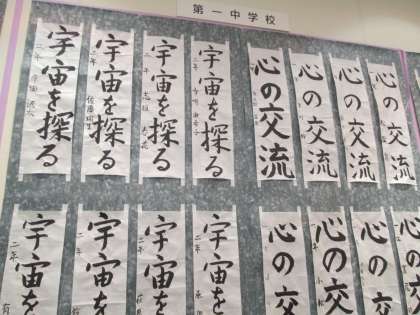 第一中学校
宇宙を探る
二年
宇宙を探る
二年
宇宙を探る
二年
宇宙を探る
二年
心の交流
心の交流
心の交流
心の交流
宇宙を
二年
宇宙を
二年
宇宙を
二年
宇宙を
二年
心の交
心の交
心の交
心の交